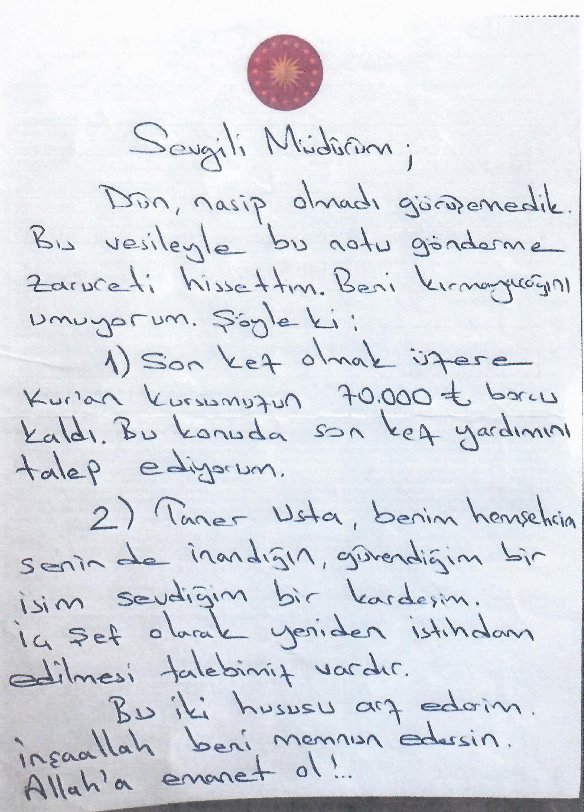 Sevgili Müdürüm;
Dün, nasip olmadı görüşemedik.
Bu vesileyle bu notu gönderme
zarureti hissettim. Beni kırmayacağını
umuyorum. Şöyle ki:
1) Son kez olmak üzere
Kur'an kursumuzun 70.000 ₺ borcu
kaldı. Bu konuda son kez yardımını
talep ediyorum.
2) Taner Usta, benim hemşehrim
senin de inandığın, güvendiğim bir
isim sevdiğim bir kardeşim.
iç Şef olarak yeniden istihdam
edilmesi talebimiz vardır.
Bu iki hususu arz ederim.
inşaallah beni memnun edersin.
Allah'a emanet ol!..